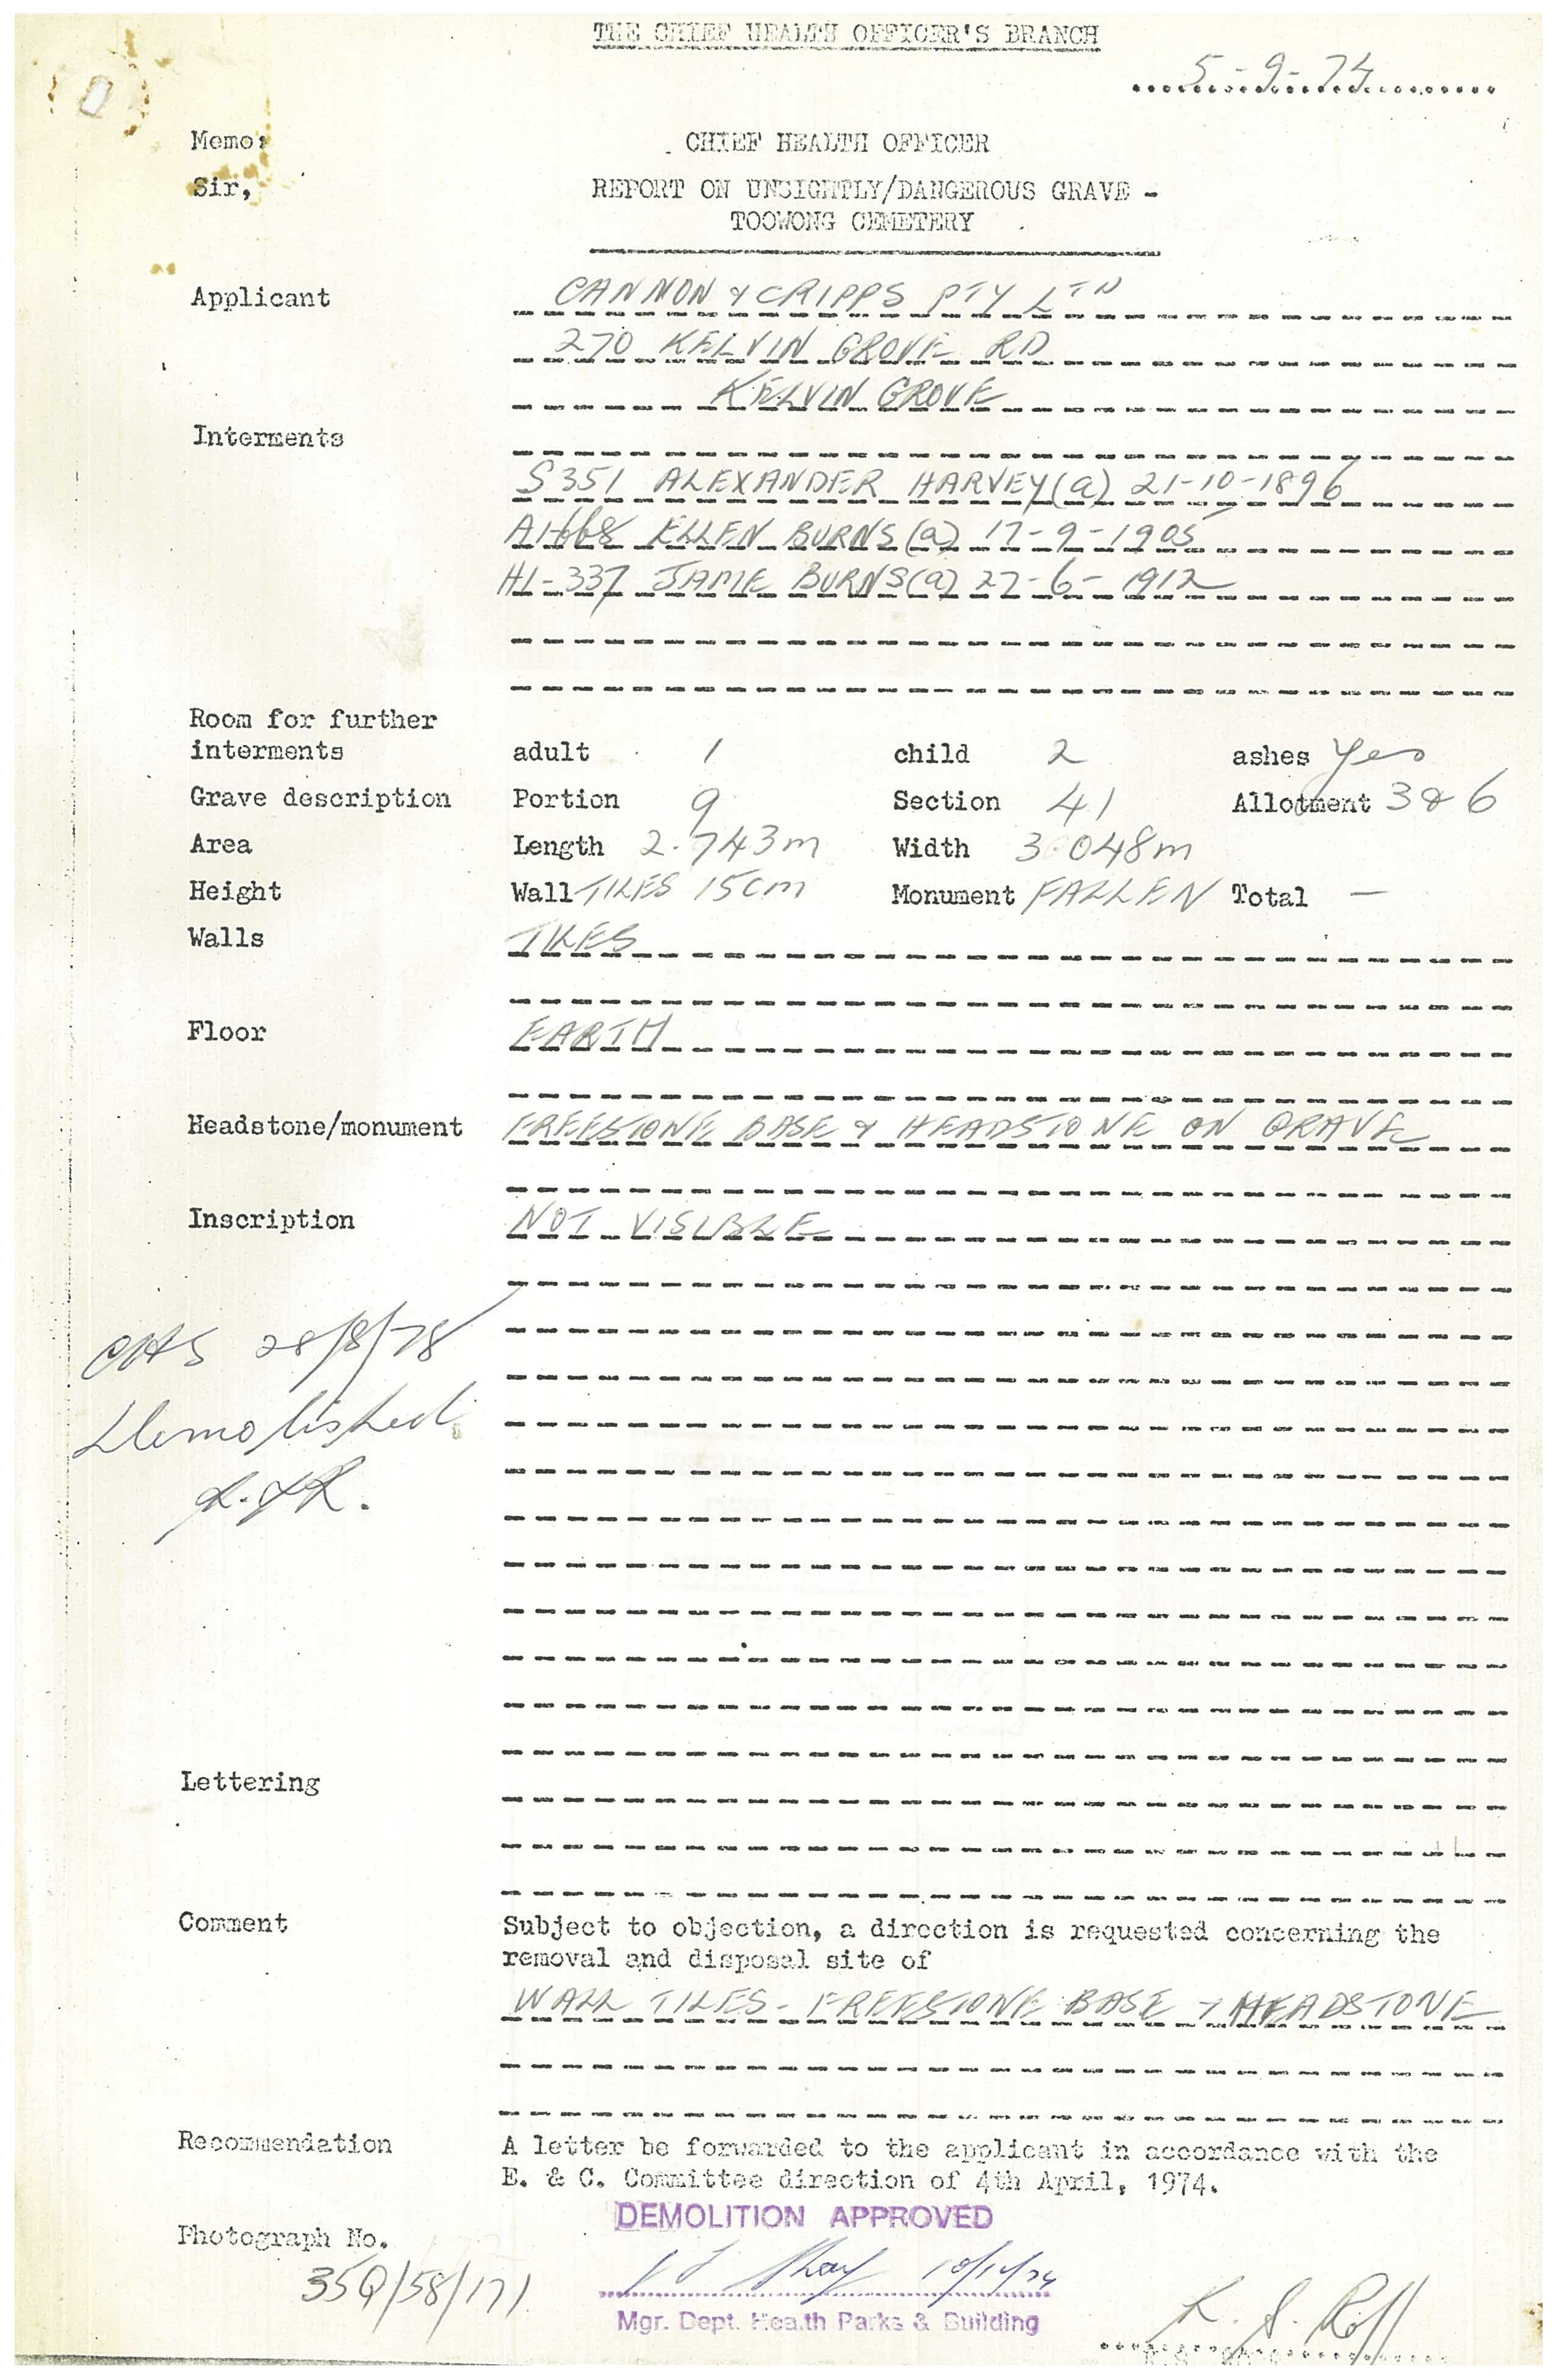 THE CHIEF HEALTH OFFICER'S BRANCH
5-9-74
Memo: CHIEF HEALTH OFFICER
Sir, REPORT ON UNSIGHTLY/DANGEROUS GRAVE -
TOOWONG CEMETERY
Applicant CANNON & CRIPPS PTY LTD
270 KELVIN GROVE RD
KELVIN GROVE
Interments
S351 ALEXANDER HARVEY (a) 21-10-1896
A1668 ELLEN BURNS (a) 17-9-1905
H1-337 JAME BURNS (a) 27-6-1912
Room for further
interments adult 1 child 2 ashes Yes
Grave description Portion 9 Section 41 Allotment 3 & 6
Area Length 2.743m Width 3.048m
Height Wall TILES 15cm Monument FALLEN Total —
Walls TILES
Floor EARTH
Headstone/monument FREESTONE BASE & HEADSTONE ON GRAVE
Inscription NOT VISIBLE
28/8/78
Demolished
Lettering
Comment Subject to objection, a direction is requested concerning the
removal and disposal site of
WALL TILES - FREESTONE BASE & HEADSTONE
Recommendation A letter be forwarded to the applicant in accordance with the
E. & C. Committee direction of 4th April, 1974.
DEMOLITION APPROVED
Photograph No.
35Q/58/171
10/12/74
Mgr. Dept. Health Parks & Building